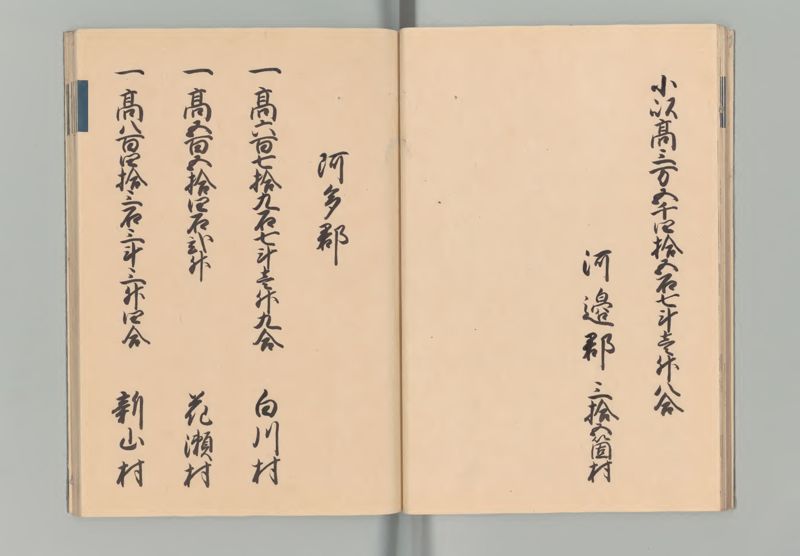 小以高三万五千四拾五石七斗壱升八合
河邊郡三拾五箇村
阿多郡
一高六百七拾九石七斗壱升九合 白川村
一高五百五拾四石弐升 花瀬村
一高八百四拾三石三斗三升四合 新山村